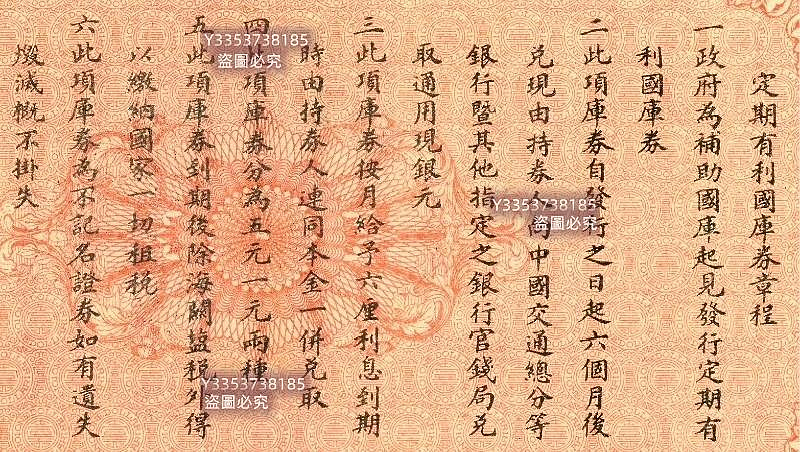 定期有利國庫券章程
一政府為補助國庫起見發行定期有
利國庫券
二此項庫券自發行之日起六個月後
兌現由持券人向中國交通總分等
銀行暨其他指定之銀行官錢局兌
取通用現銀元
三此項庫券按月給予六厘利息到期
時由持券人連同本金一併兌取
四此項庫券分為五元一元兩種
五此項庫券到期後除海關鹽稅外得
以繳納國家一切租稅
六此項庫券為不記名證券如有遺失
燬滅概不掛失
Y3353738185
盜圖必究
Y3353738185
盜圖必究
Y3353738185
盜圖必究